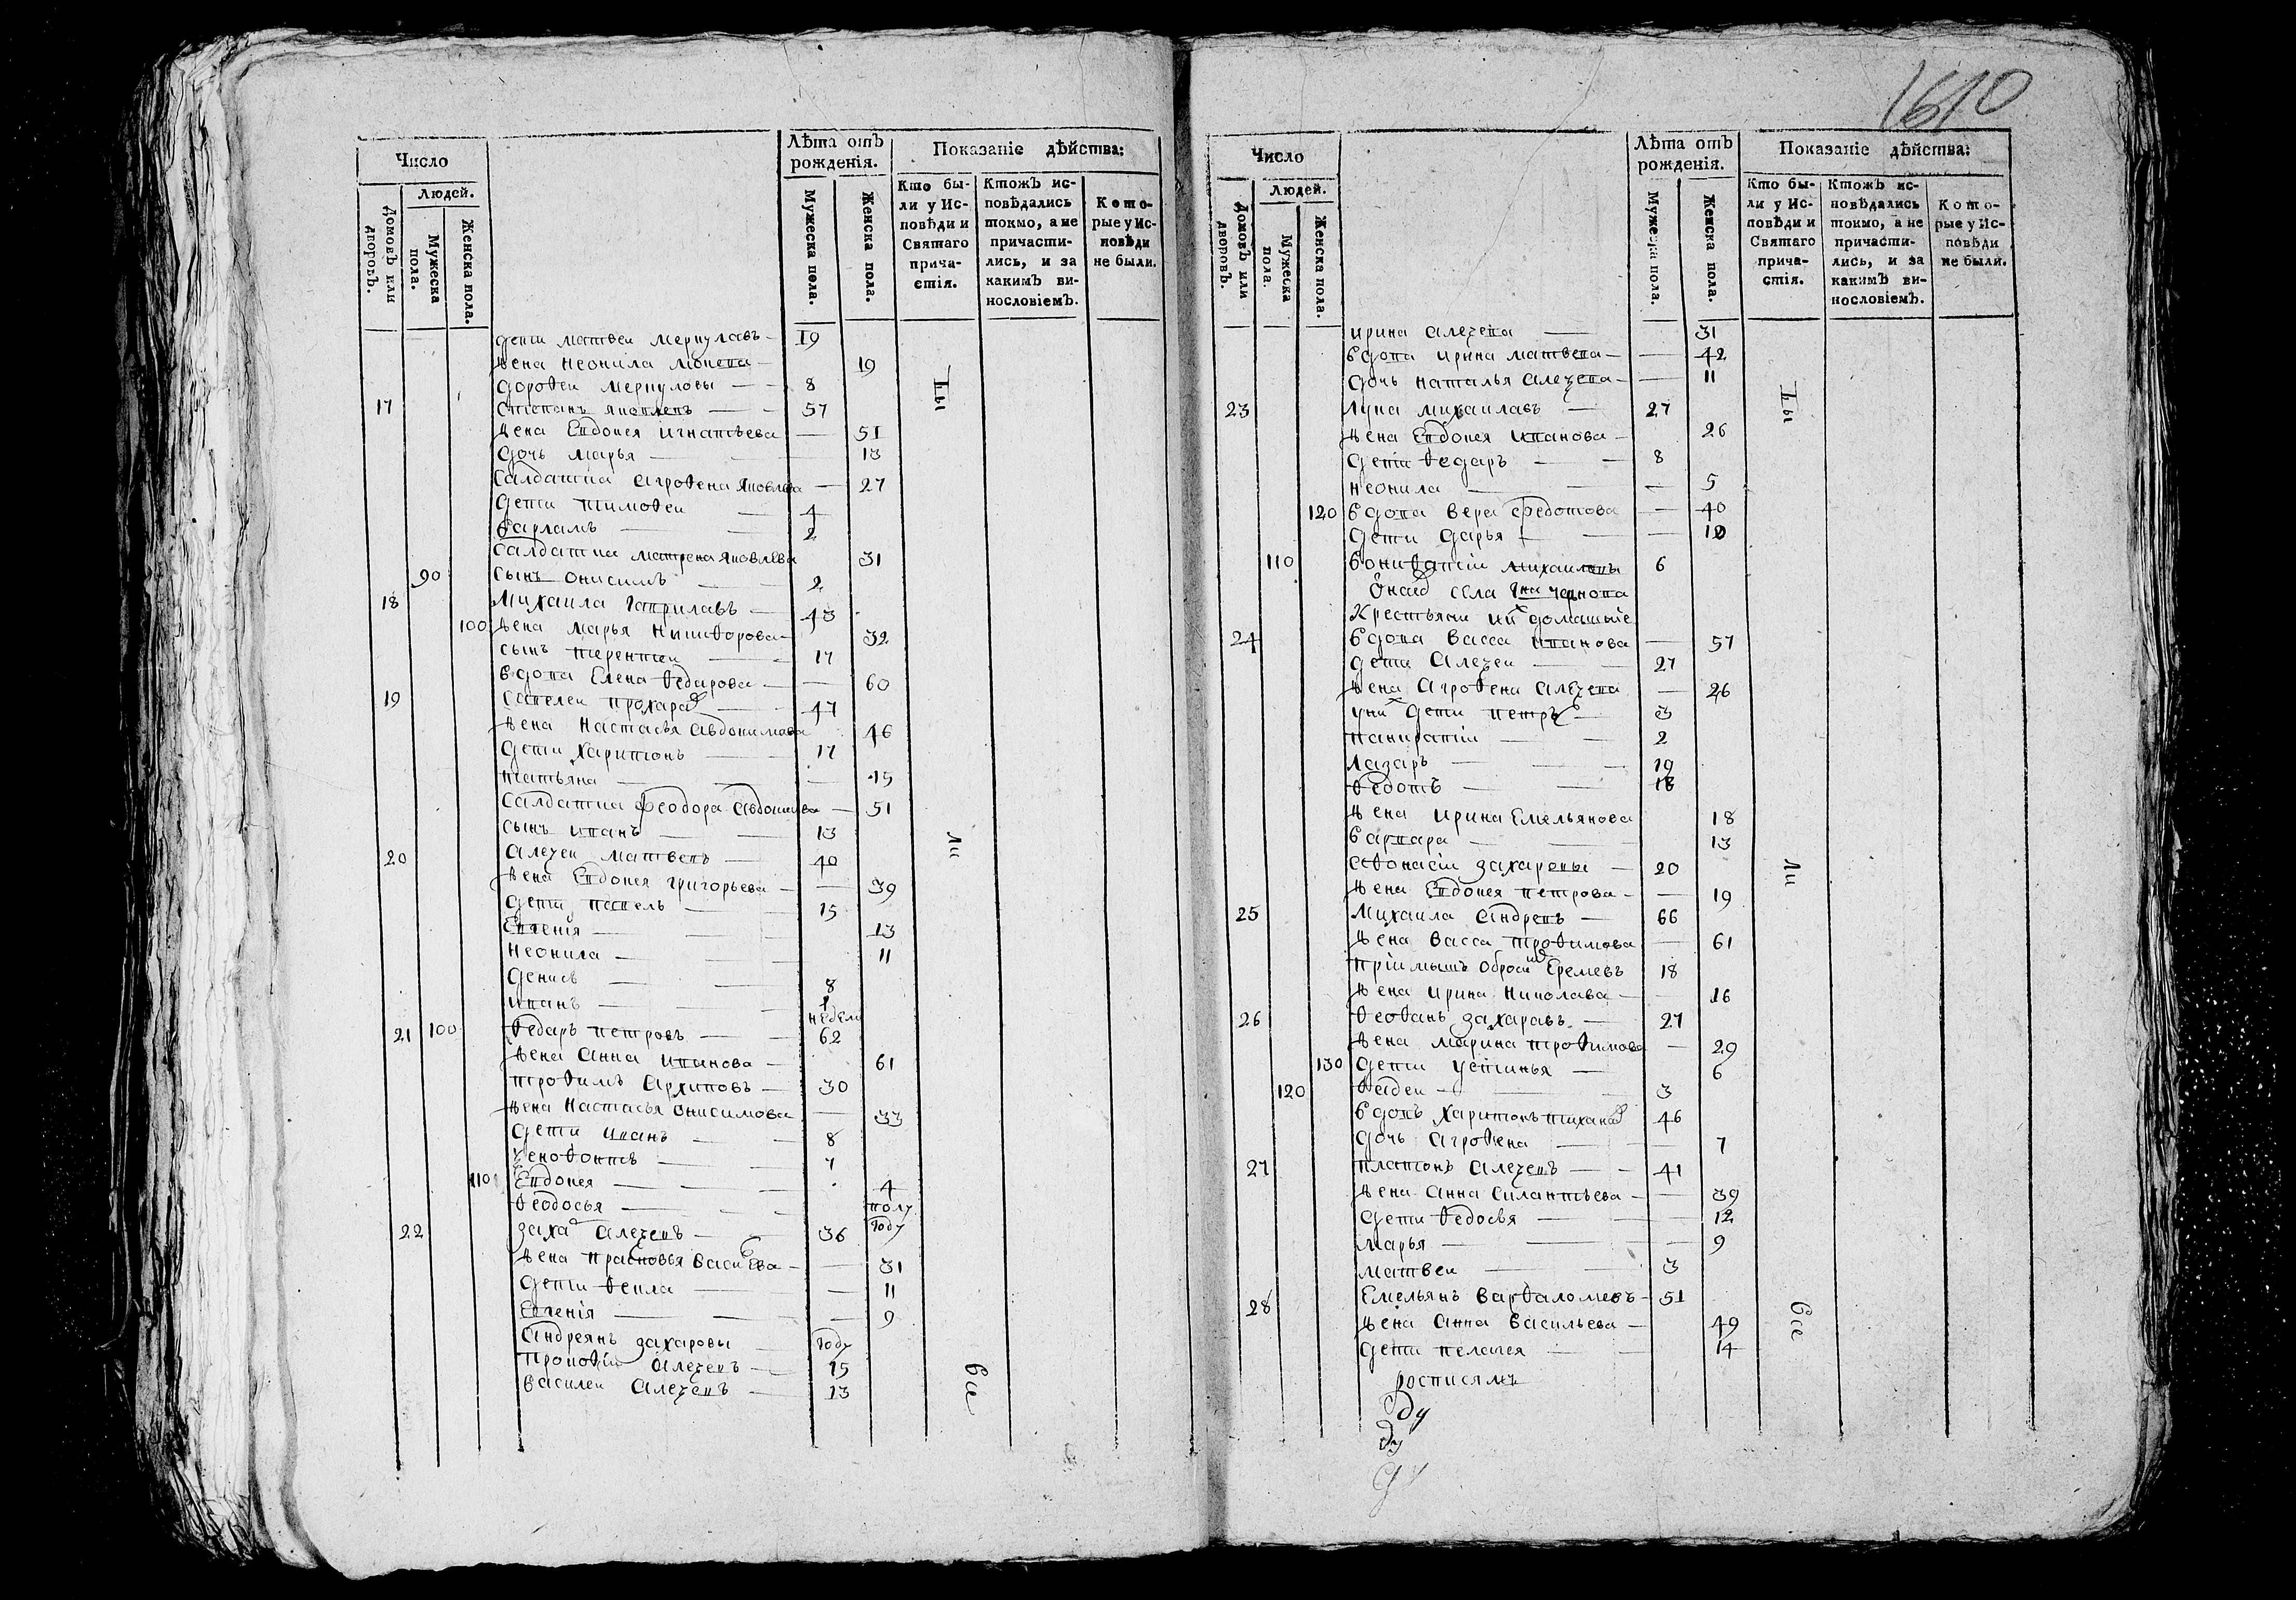 1610
Число
Людей.
Домовъ или дворовъ.
Мужеска пола.
Женска пола.
Лѣта отъ рожденія.
Мужеска пола.
Женска пола.
Показаніе дѣйства:
Кто бы-
ли у Ис-
повѣди и
Святаго
прича-
стія.
Ктожъ ис-
повѣдались
токмо, а не
причасти-
лись, и за
какимъ ви-
нословіемъ.
Кото-
рые у Ис-
повѣди
не были.
дети матвеи меркулавъ 19
жена неонила 19
дорофеи меркуловы 8
17 степанъ яковлевъ — 57
жена Евдокея игнатьева — 51
дочь марья 13
салдатка агрофена яковлева — 27
дети тимофеи 4
варламъ 2
салдатка матрена яковлева 31
90 сынъ онисимъ 2
18 михаила гаврилавъ — 43
100 жена марья никифорова 32
сынъ терентеи 17
вдова Елена федарова — 60
19 савелеи прохара 47
жена настасья авдокимова 46
дети харитонъ 17
татьяна — 15
салдатка феодора — 51
сынъ иванъ 13
20 алеѯеи матвевъ 40
жена Евдокея григорьева — 39
дети павелъ 15
Евгенія 13
неонила 11
денисъ 8
иванъ 1 недели
21 100 федаръ петровъ 62
жена анна иванова — 61
трофимъ архиповъ — 30
жена настасья онисимова — 33
дети иванъ 8
ѯенофонтъ 7
110 Евдокея 4
феодосья полу году
22 заха алеѯевъ 36
жена прасковья васи ева — 31
дети фекла — 11
Евгенія 9
андреянъ захаровы году
прокофіи алеѯевъ 15
василеи алеѯевъ 13
Ты
ли
все
Число
Людей.
Домовъ или дворовъ.
Мужеска пола.
Женска пола.
Лѣта отъ рожденія.
Мужеска пола.
Женска пола.
Показаніе дѣйства:
Кто бы-
ли у Ис-
повѣди и
Святаго
прича-
стія.
Ктожъ ис-
повѣдались
токмо, а не
причасти-
лись, и за
какимъ ви-
нословіемъ.
Кото-
рые у Ис-
повѣди
не были.
ирина алеѯева 31
вдова ирина матвева — 42
дочь наталья алеѯева — 11
23 лука михаилавъ 27
жена Евдокея иванова 26
дети федаръ 8
неонила — 5
120 вдова вера федотова — 40
дети дарья — 10
110 вонифатіи михаиловы 6
села чернова
крестьяни ихъ домашніе
24 вдова васса иванова — 57
дети алеѯеи 27
жена агрофена алеѯева — 26
у них дети петръ 3
панкратіи 2
лазарь 19
федотъ 18
жена ирина Емельянова 18
варвара 13
афонасіи захаровы 20
жена Евдокея петрова — 19
25 михаила андревъ 66
жена васса трофимова — 61
пріимышъ Еремевъ 18
жена ирина николава — 16
26 феофанъ захаравъ 27
жена марина трофимова — 29
130 дети устинья 6
120 фадеи 3
вдовъ харитонъ тихана 46
дочь агрофена 7
27 платонъ алеѯевъ 41
жена анна силантьева — 39
дети федосья — 12
марья — 9
матвеи 3
28 Емельянъ варфаломевъ 51
жена анна васильева 49
дети пелагея 14
росписямъ
Ты
ли
все